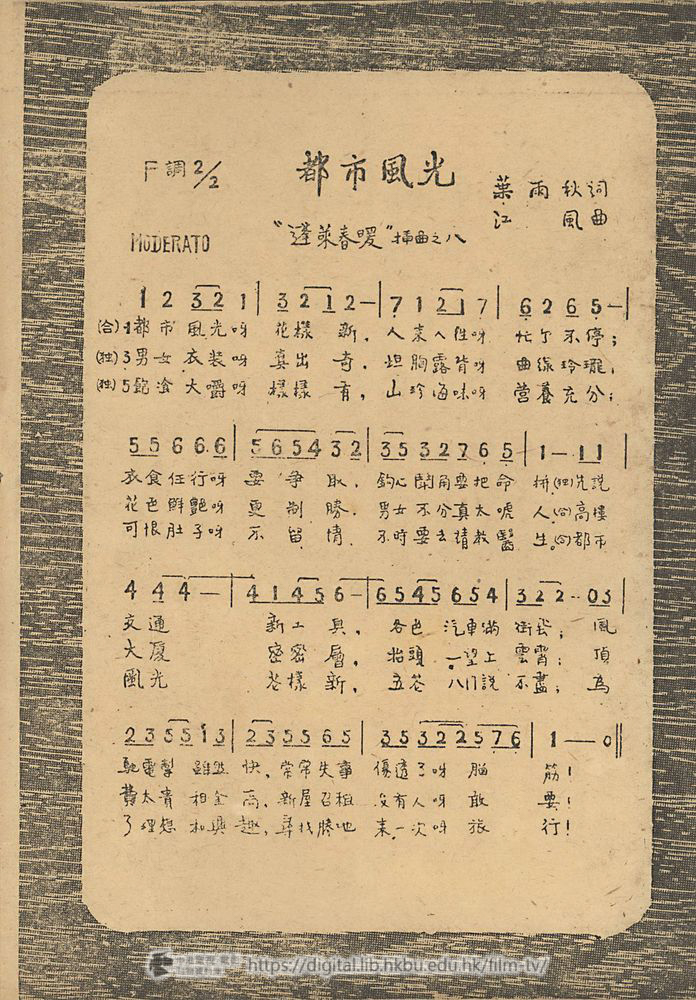 都市風光
F調2/2
葉雨秋詞
江風曲
MODERATO
"蓬萊春暖"插曲之八
1 2 3 2 1 | 3 2 1 2 — | 7 1 2 1 7 | 6 2 6 5 — |
(合)1都市風光呀 花樣新, 人來人往呀 忙个不停;
(独)3男女衣裝呀 真出奇, 坦胸露背呀 曲線玲瓏,
(独)5飽飡大嚼呀 樣樣有, 山珍海味呀 營養充分;
5 5 6 6 6 | 5 6 5 4 3 2 | 3 5 3 2 7 6 5 | 1 — 1 1 |
衣食住行呀 要爭取, 鈎心鬭角要把命 拼(独)先説
花色鮮艷呀 更制勝, 男女不分真太唬 人(合)高樓
可恨肚子呀 不留情, 不時要去請教醫 生(合)都市
4 4 4 — | 4 1 4 5 6 — | 6 5 4 5 6 5 4 | 3 2 2 · 0 5 |
交通 新工具, 各色汽車滿街熒; 風
大廈 密密層, 抬頭一望上雲霄; 頂
風光 花樣新, 五花八門説不盡; 為
2 3 5 5 1 3 | 2 3 5 5 6 5 | 3 5 3 2 2 5 7 6 | 1 — 0 ‖
馳電掣雖然 快, 常常失事 傷透了呀腦 筋!
費太貴租金 高, 新屋召租 没有人呀敢 要!
了理想和興 趣, 尋找勝地 來一次呀旅 行!
https://digital.lib.hkbu.edu.hk/film-tv/